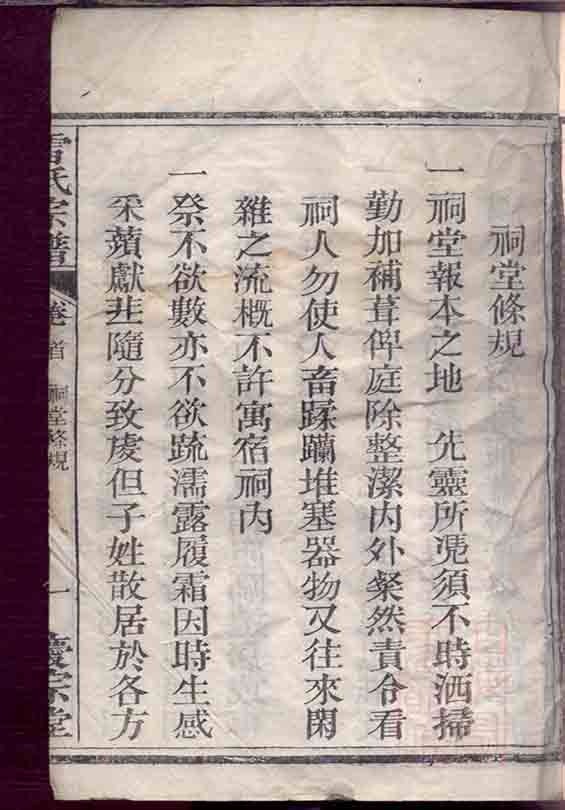 祠堂條規
一祠堂報本之地 先靈所憑須不時洒掃
勤加補葺俾庭除整潔内外粲然責令看
祠人勿使人畜蹂躪堆塞器物又往來閑
雜之流概不許寓宿祠内
一祭不欲數亦不欲疏濡露履霜因時生感
采蘋獻韭隨分致虔但子姓散居於各方
氏宗譜
卷首 祠堂條規
一
宗堂